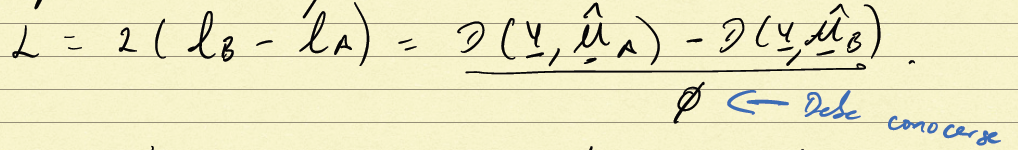 L = 2(l_B - l_A) = D(y, μ̂_A) - D(y, μ̂_B).
φ ← Debe conocerse